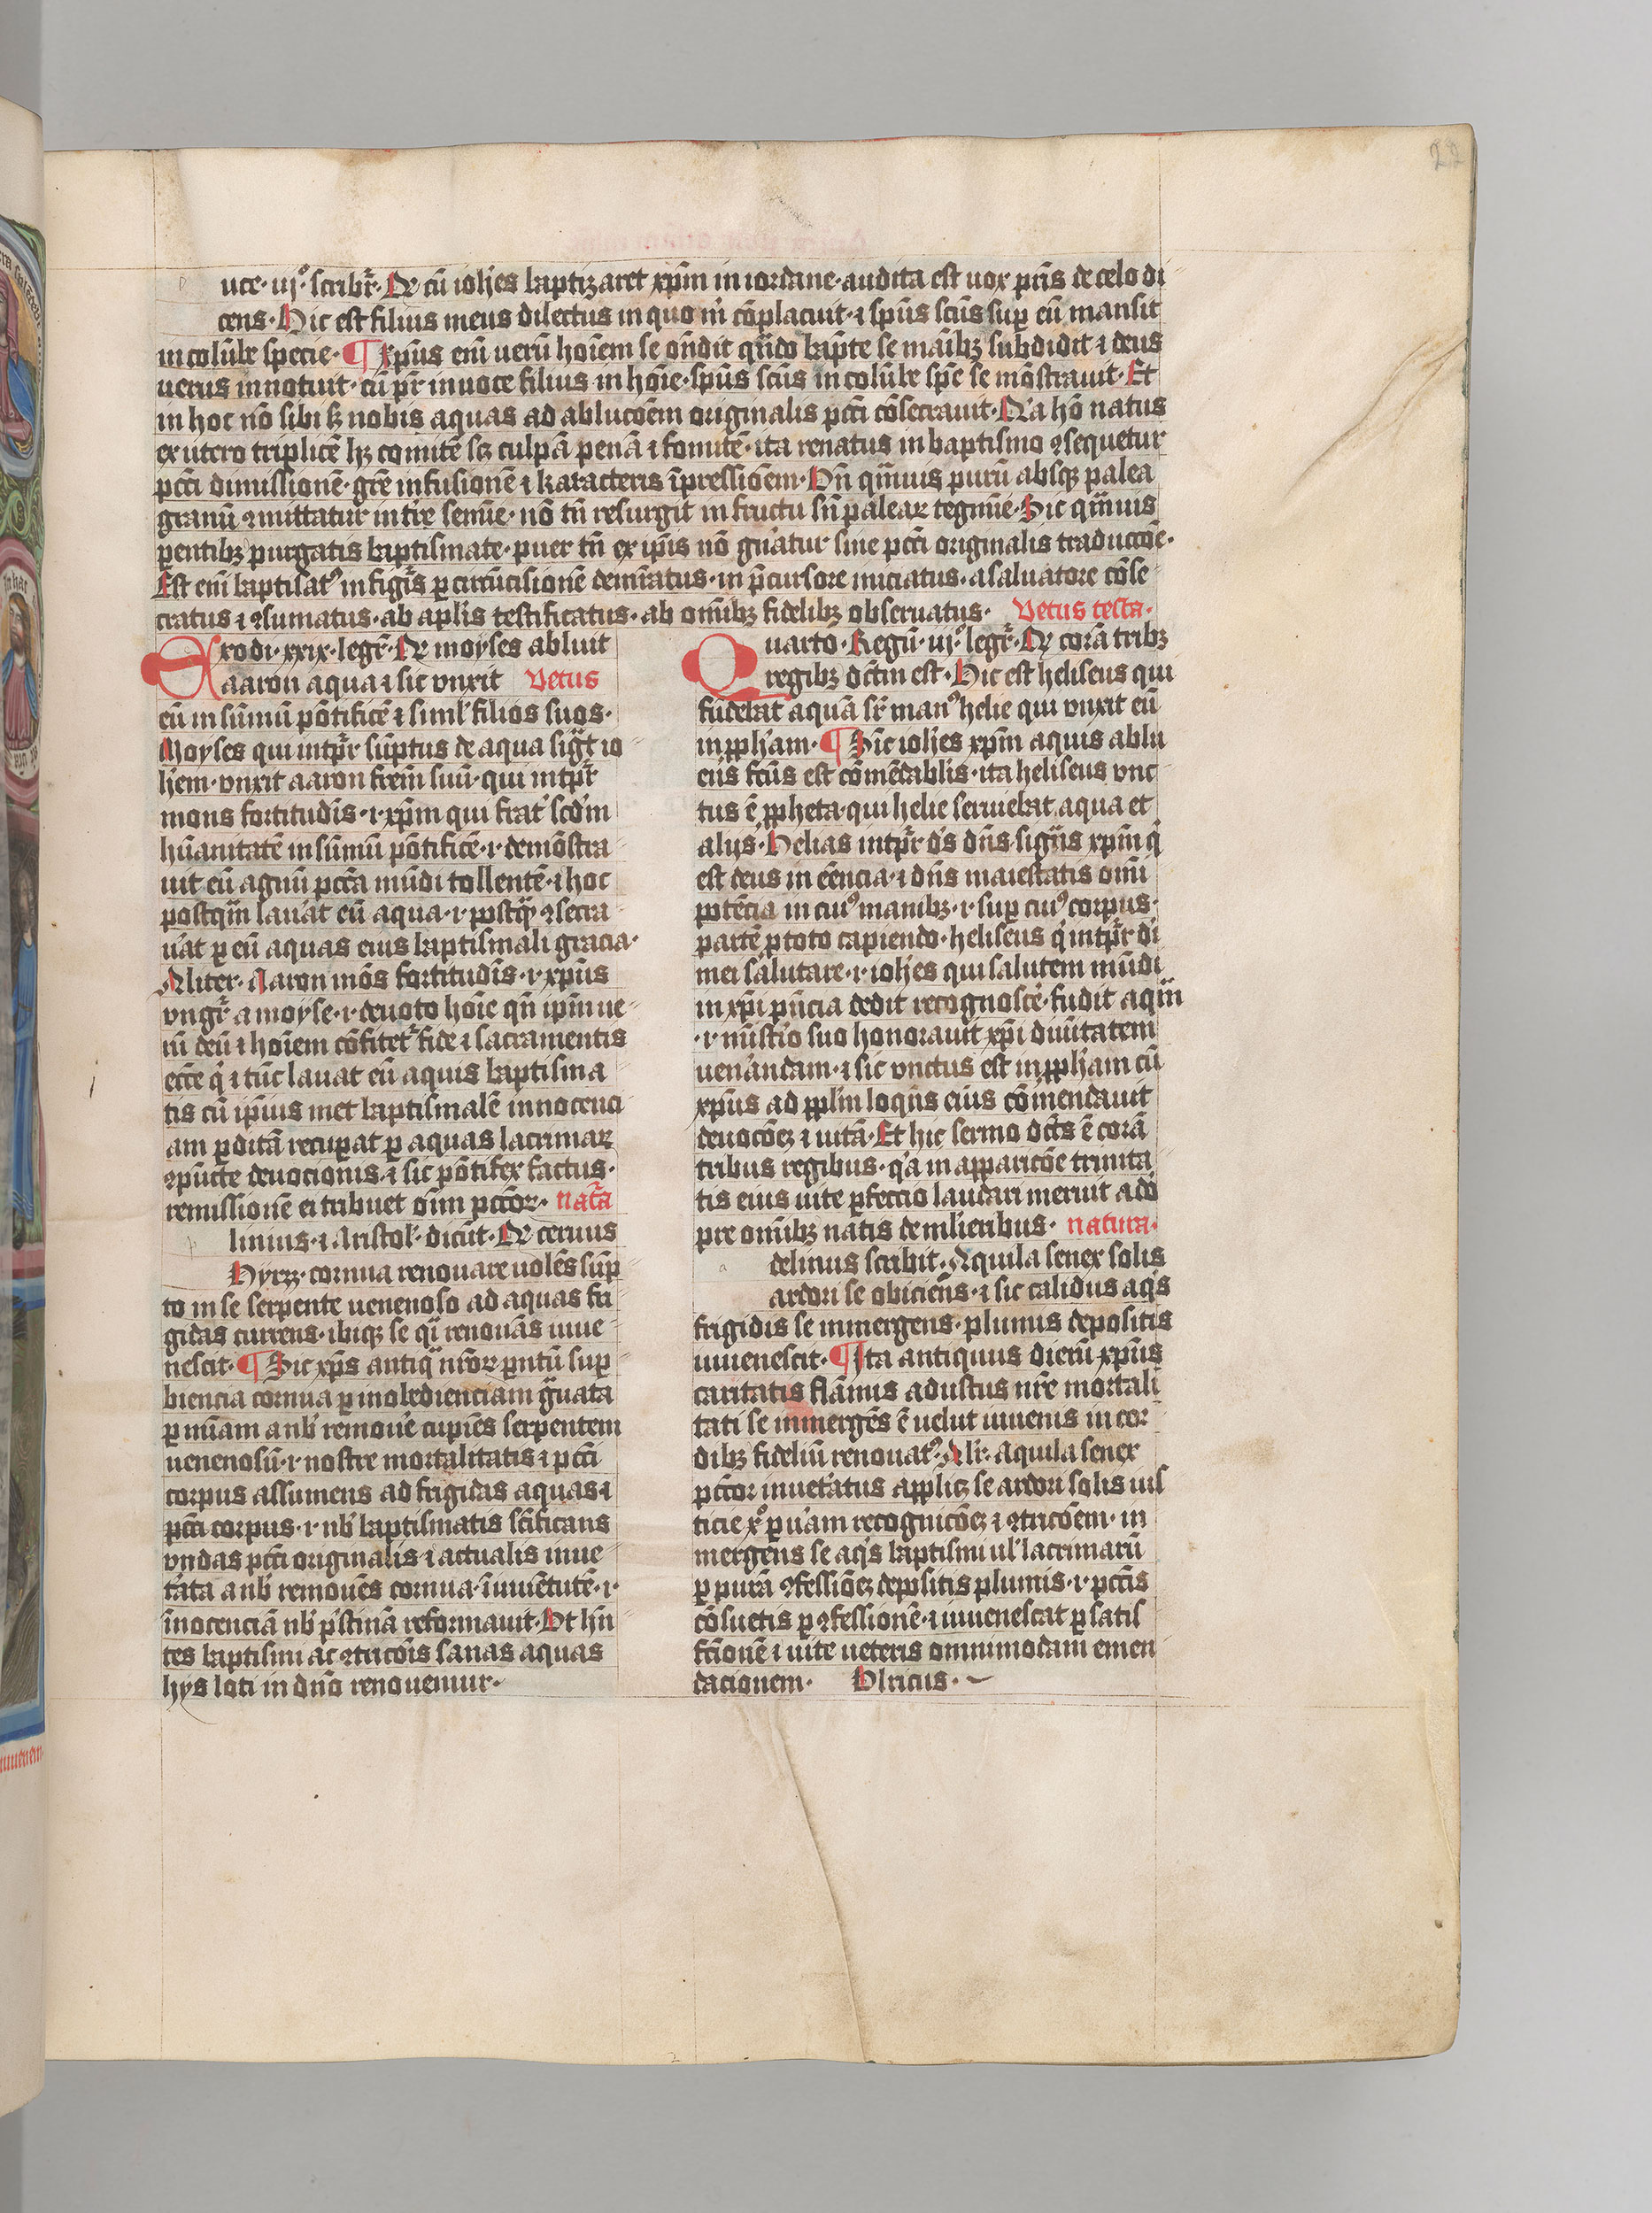 22
uce · iij° · scribr̄ · Q cū ioh̄es baptizaret xp̄m in iordane · audita est uox pr̄is de celo di
cens · Hic est filius meus dilectus in quo m̄ cōplacuit · ⁊ sp̄us sc̄us sup̄ eū mansit
in colūbe specie · ¶ Xp̄us eni uerū hoīem se on̄dit qn̄do bap̄te se māibꝫ subdidit ⁊ deus
uerus innotuit · cū pr̄ in uoce filius in hoīe · sp̄us sc̄us in colūbe sp̄e se mōstrauit · Et
in hoc nō sibi sꝫ nobis aquas ad ablucōem originalis pcc̄i cōsecrauit · Na hō natus
ex utero triplicē hꝫ comitē sꝫ culpā penā ⁊ fomitē · ita renatus in baptismo ꝯsequetur
pcc̄i dimissionē · grē infusionē ⁊ karacteris īpressiōem · Vn̄ qm̄uis purū absqꝫ palea
granū ꝯmittatur in tr̄e semīe · nō tn̄ resurgit in fructu sn̄ paleaꝝ tegmīe · Sic qm̄uis
pentibꝫ purgatis baptismate · puer tn̄ ex ip̄is nō gn̄atur sine pcc̄i originalis traduccōe ·
Est eni baptisatꝰ in figr̄is ꝑ circūcisionē demr̄atus · in p̄cursore iniciatus · a saluatore cōse
cratus ⁊ ꝯsumatus · ab apl̄is testificatus · ab om̄ibꝫ fidelibꝫ obseruatus · Vetus testa ·
Exodi · xxix · legr̄ · Q moyses abluit
aaron aqua ⁊ sic vnxit Vetus
eū in sūmū pōtificē ⁊ siml̄ filios suos ·
Moyses qui intp̄r̄ sūptus de aqua sigt̄ io
h̄em · vnxit aaron frēm suū · qui intp̄r̄
mons fortitudīs · ⁊ xp̄m qui frat̄ scd̄m
hūanitatē in sūmū pōtificē · ⁊ demōstra
uit eū agnū pcc̄a mūdi tollentē · ⁊ hoc
postqm̄ lauāt eū aqua · ⁊ postq̄ ꝯsecra
uāt ꝑ eū aquas eius baptismali gracia ·
Aliter · Aaron mōs fortitudīs · ⁊ xp̄us
vngr̄ a moyse · ⁊ deuoto hoīe qn̄ ip̄m ue
rū deū ⁊ hoīem cōfitet̄ fide ⁊ sacramentis
ecc̄e q̄ ⁊ tūc lauat eū aquis baptisma
tis cū ip̄ius met baptismalē innocenci
am ꝑditā recuꝑat ꝑ aquas lacrimaꝝ
ꝯpūcte deuocionis · ⁊ sic pōtifex factus ·
remissionē ei tribuet oīm pcc̄oꝝ · nat̄a
linius · ⁊ Aristol̄ · dicūt · Q ceruus
Hyrꝫ · cornua renouare uolēs sūp
to in se serpente uenenoso ad aquas fri
gidas currens · ibiqꝫ se q̄i renouās iuue
nescit · ¶ Sic xp̄s antiq̄ nr̄oꝝ pn̄tū sup̄
biencia cornua ꝑ inobedienciam gn̄ata
ꝑ mīam a nb̄ remouē cupiēs serpentem
uenenosū · ⁊ nostre mortalitatis ⁊ pcc̄i
corpus assumens ad frigidas aquas ⁊
pcc̄i corpus · ⁊ nb̄ baptismatis sc̄ificans
vndas pcc̄i originalis ⁊ actualis inue
t̄ata a nb̄ remouēs cornua · ī iuuētutē · ⁊
īnocenciā nb̄ p̄stinā reformauit · Vt hn̄
tes baptismi ac ꝯtricōis sanas aquas
hys loti in dn̄o renouemur ·
Quarto · Regū · iij° · legr̄ · Q corā tribꝫ
regibꝫ dc̄m est · Hic est heliseus qui
fūdebat aquā sr̄ manꝰ helie qui vnxit eū
in ꝓph̄am · ¶ Sic ioh̄es xp̄m aquis ablu
ens fc̄us est cōmēdablis · ita heliseus vnc
tus ē ꝓpheta · qui helie seruiebat aqua et
alijs · Helias intp̄r̄ ds̄ dn̄s · signīs xp̄m q̄
est deus in eēncia · ⁊ dn̄s maiestatis om̄i
potēcia in cuiꝰ manibꝫ · ⁊ sup̄ cuiꝰ corpus ·
partē ꝓ toto capiendo · heliseus q̄ intp̄r̄ di
mei salutare · ⁊ ioh̄es qui salutem mūdi
in xp̄i pn̄cia dedit recognoscē · fudit aqm̄
· ⁊ mīst̄io suo honorauit xp̄i diuītatem
uen̄andam · ⁊ sic vnctus est in ꝓph̄am cū
xp̄us ad ppl̄m loqn̄s eius cōmendauit
deuocōeꝫ ⁊ uitā · Et hic sermo dc̄us ē corā
tribus regibus · qa in apparicōe trinita
tis eius uite ꝑfeccio laudari meruit adō
pre om̄ibꝫ natis de ml̄ieribus · natura ·
delinus scribit · Aquila senex solis
ardori se obiciens · ⁊ sic calidus aq̄s
frigidis se inmergens · plumis depositis
iuuenescit · ¶ Ita antiquus dierū xp̄us
caritatis flāmis adustus nr̄e mortali
tati se inmergēs ē uelut iuuenis in cor
dibꝫ fideliū renouatꝰ · Alr̄ · aquila senex
pcc̄or inuet̄atus applicꝫ se ardori solis ius
ticie x° ꝑ uam recognicōeꝫ ⁊ ꝯtricōem · in
mergens se aq̄s baptismi ul̄ lacrimarū
ꝑ purā ꝯfessiōeꝫ depositis plumis · ⁊ pcc̄is
cōsuetis ꝑ ꝯfessionē · ⁊ iuuenescat ꝑ satis
fc̄ionē ⁊ uite ueteris omnimodam emen
dacionem · Vlricus ·